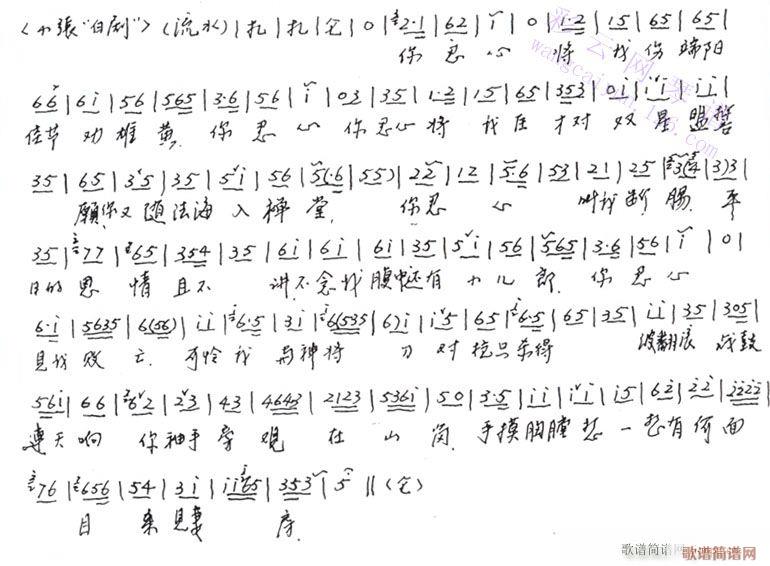 〈小張"白剧"〉(流水)|扎|扎|仓|0|2·1|62|i|0|i·2|15|65|65|
你忍心 将 我伤 端阳
66|6i|56|565|3·6|56|i|03|35|1·2|15|65|353|0i|ii|ii|
佳节 劝 雄 黄. 你 忍 心 你 忍心将 我 才对 双 星 盟誓
35|65|35|35|5i|56|5(·6|55)|22|12|5·6|53|21|25|3(4|3)3|
願你又 随法海 入 禅 堂. 你 忍 心 叫我断 腸. 平
35|77|65|354|35|6i|6i|6i|35|5i|56|565|3·6|56|i|0|
日的 恩 情 且不 讲. 不念我腹中还有 小儿 郎. 你 忍心
6·i|5635|6(56)|ii|6·5|3i|6(535|6)i|i5|65|6·5|65|35|ii|35|305|
見我 败 亡. 可怜我 与神将 刀 对 枪只杀得 波翻浪 战鼓
56i|66|62|23|43|4643|2123|536i|50|3·5|ii|ii|i5|62|22|2222|
連天响 你袖手 旁 观 在 山 岗. 手摸胸膛想 一 想有何面
76|656|54|3i|ii65|353|5‖(仓)
目 来見妻 房.
彩云网
歌谱简谱网
歌谱简谱网